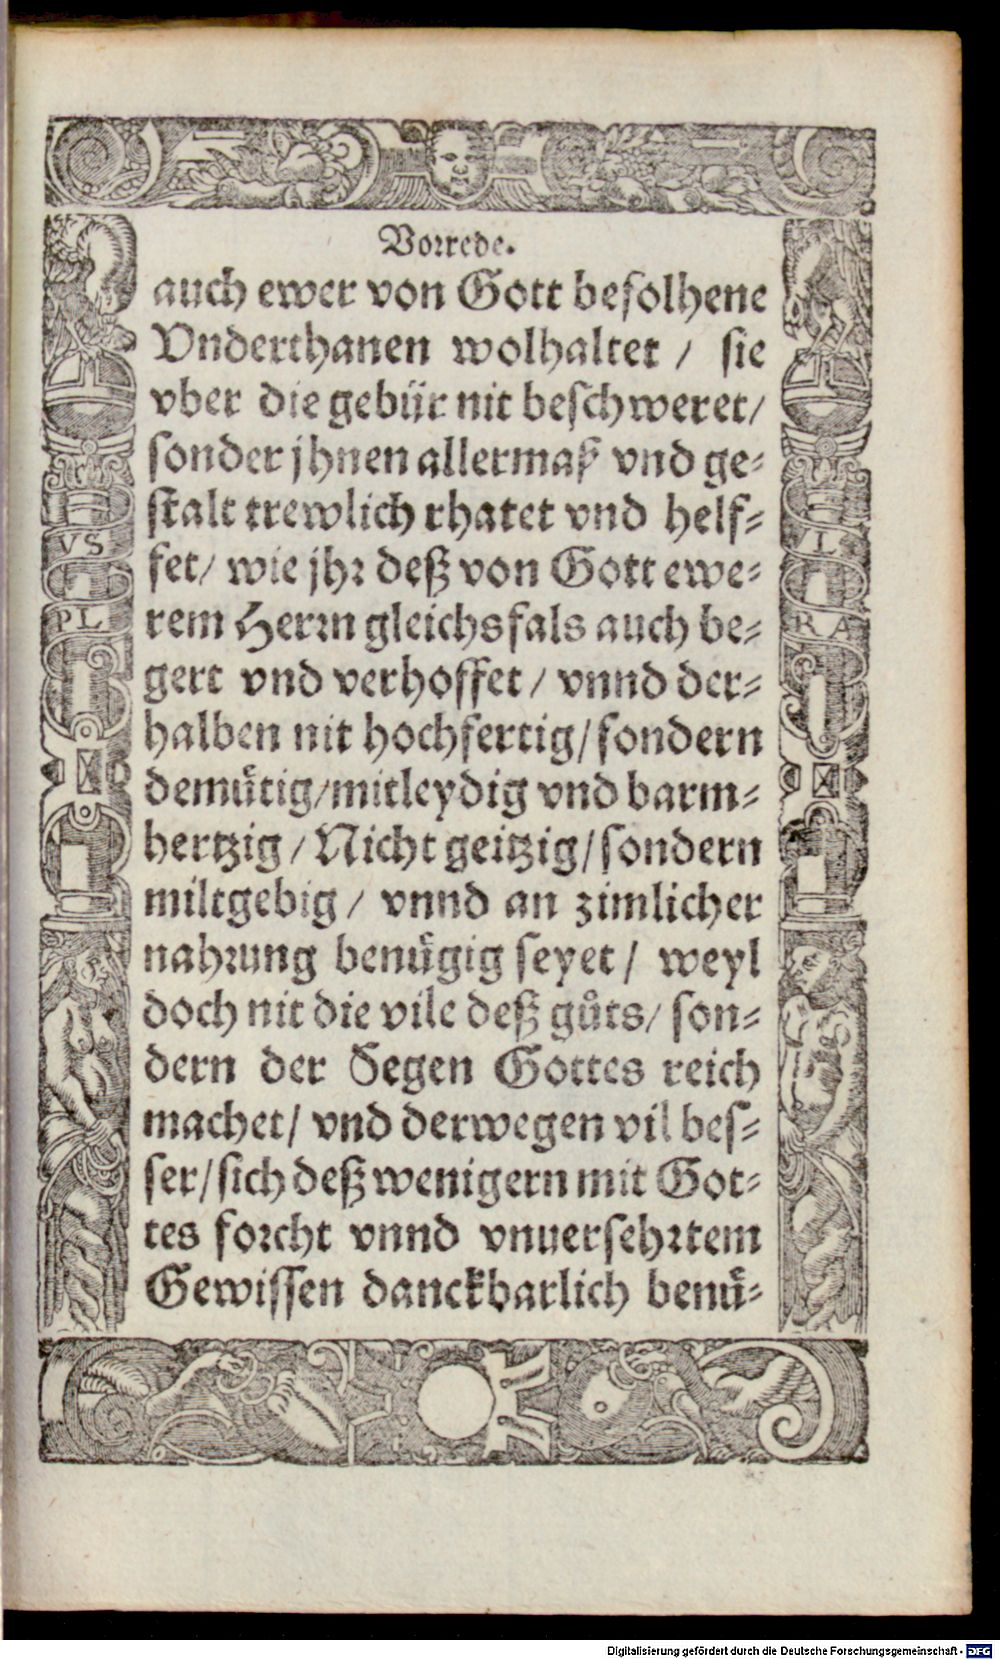 Vorrede.
auch ewer von Gott befolhene
Vnderthanen wolhaltet / sie
vber die gebür nit beschweret/
sonder jhnen allermaß vnd ge-
stalt trewlich rhatet vnd helf-
fet/ wie jhr deß von Gott ewe-
rem Herrn gleichsfals auch be-
gert vnd verhoffet / vnnd der-
halben nit hochfertig/ sondern
demuͤtig/mitleydig vnd barm-
hertzig / Nicht geitzig/ sondern
miltgebig / vnnd an zimlicher
nahrung benuͤgig seyet / weyl
doch nit die vile deß guͦts/ son-
dern der Segen Gottes reich
machet/ vnd derwegen vil bes-
ser/ sich deß wenigern mit Got-
tes forcht vnnd vnuersehrtem
Gewissen danckbarlich benuͤ-
VS
PL
L
RA
Digitalisierung gefördert durch die Deutsche Forschungsgemeinschaft - DFG